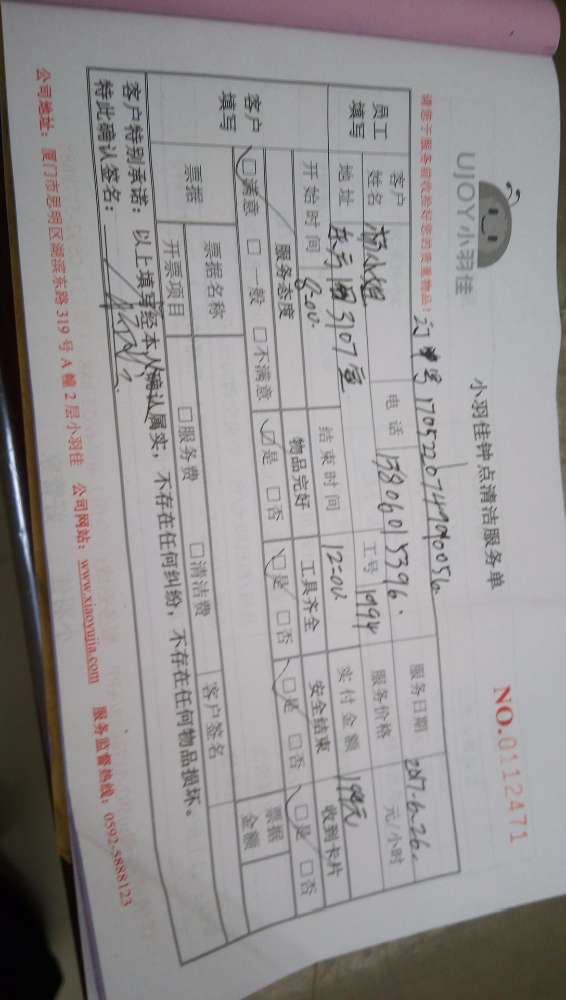 UJOY小羽佳
小羽佳钟点清洁服务单
NO.0112471
请您于服务前收拾好您的贵重物品!
员工填写
客户姓名
电话
服务日期 2017.6.26
地址
工号 1994
服务价格 元/小时
开始时间 8:00
结束时间 12:00
实付金额
客户填写
服务态度 物品完好 工具齐全 安全结束 收到卡片
☑满意 □一般 □不满意 ☑是 □否 ☑是 □否 ☑是 □否 ☑是 □否
票据 票据名称 客户签名 票据金额
开票项目 □服务费 □清洁费
客户特别承诺:以上填写经本人确认属实,不存在任何纠纷,不存在任何物品损坏。
特此确认签名:
公司地址:厦门市思明区湖滨东路319号A幢2层小羽佳 公司网站:www.xiaoyujia.com 服务监督热线:0592-5888123